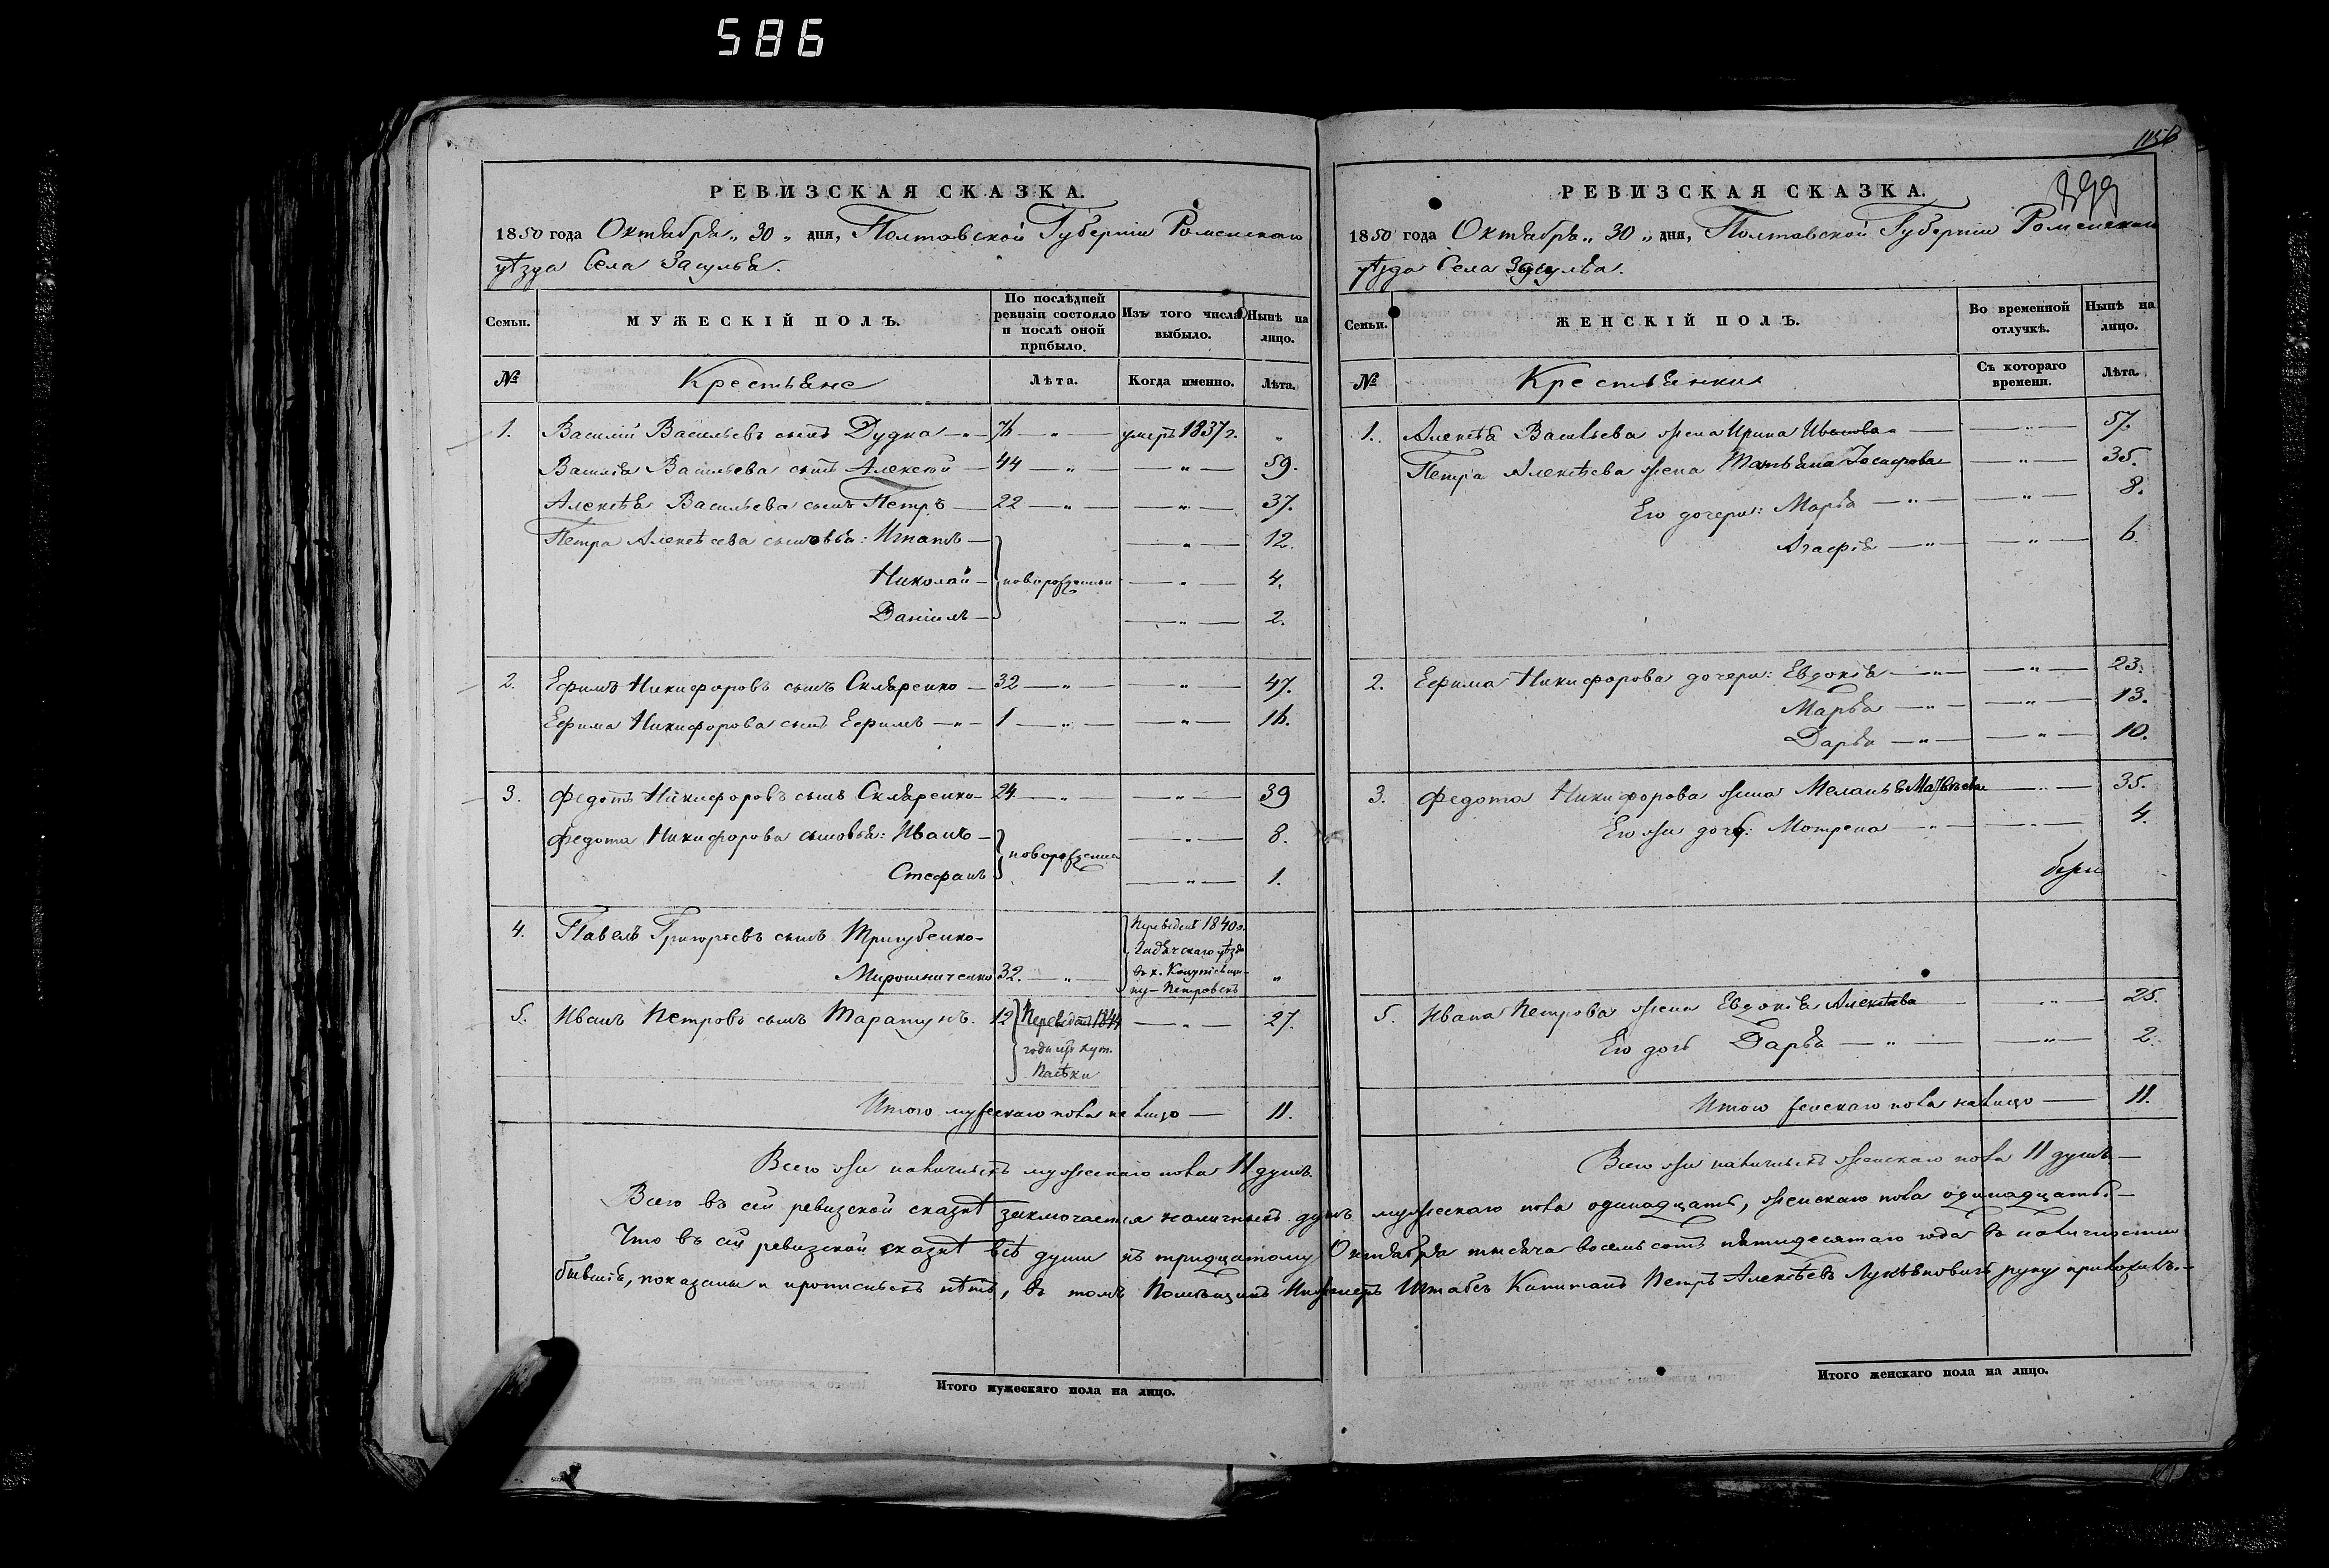 586
РЕВИЗСКАЯ СКАЗКА.
1850 года Октября „ 30 „ дня, Полтавской Губерніи Роменскаго
уѣзда Села Засулья.
Семьи.
МУЖЕСКІЙ ПОЛЪ.
По послѣдней ревизіи состояло и послѣ оной прибыло.
Изъ того числа выбыло.
Нынѣ на лицо.
№
Крестьяне
Лѣта.
Когда именно.
Лѣта.
1. Василій Васильевъ сынъ Дудка — „ — 76 — „ — умеръ 1837 г. „
Василія Васильева сынъ Алексѣй — 44 — „ — — „ — 59.
Алексѣя Васильева сынъ Петръ — 22 — „ — — „ — 37.
Петра Алексѣева сыновья: Игнатъ — — „ — 12.
Николай — новорожденныи — „ — 4.
Даніилъ — — „ — 2.
2. Ефимъ Никифоровъ сынъ Скляренко — 32 — „ — — „ — 47.
Ефима Никифорова сынъ Ефимъ — „ — 1 — „ — — „ — 16.
3. Федотъ Никифоровъ сынъ Скляренко — 24 — „ — — „ — 39
Федота Никифорова сыновья: Иванъ — — „ — 8.
новорожденна
Стефанъ — „ — 1.
4. Павелъ Григорьевъ сынъ Тригубенко-
Мирошниченко 32. — „ — „
Переведенъ 1840 г.
Гадячскаго уѣзда
въ х.
5. Иванъ Петровъ сынъ Таратунъ. 12 Переведенъ 1844 — „ — 27.
года изъ хут.
Пасѣки
Итого мужескаго пола на лицо — 11.
Всего же наличныхъ мужескаго пола 11 душъ.
Итого мужескаго пола на лицо.
1156
РЕВИЗСКАЯ СКАЗКА.
1850 года Октября „ 30 „ дня, Полтавской Губерніи Роменскаго
уѣзда Села Засулья.
Семьи.
ЖЕНСКІЙ ПОЛЪ.
Во временной отлучкѣ.
Нынѣ на лицо.
№
Крестьянки
Съ котораго времени.
Лѣта.
1. Алексѣя Васильева жена Ирина Иванова — — „ — 57.
Петра Алексѣева жена Татьяна Іосифова — „ — 35.
Его дочери: Марья — „ — — „ — 8.
Агафія — „ — — „ — 6.
2. Ефима Никифорова дочери: Евдокія — „ — — „ — 23.
Марья — „ — — „ — 13.
Дарья — „ — — „ — 10.
3. Федота Никифорова жена Меланья Матвѣева — „ — 35.
Его же дочь: Мотрена — „ — — „ — 4.
5. Ивана Петрова жена Евдокія Алексѣева — „ — 25.
Его дочь Дарья — „ — — „ — 2.
Итого женскаго пола на лицо — 11.
Всего же наличныхъ женскаго пола 11 душъ —
Всего въ сей ревизской сказкѣ заключается наличныхъ душъ мужескаго пола одинадцать, женскаго пола одинадцать. —
Что въ сей ревизской сказкѣ всѣ души къ тридцатому Октября тысяча восемь сотъ пятидесятаго года въ наличности
бывшія, показаны и прописныхъ нѣтъ, въ томъ Помѣщикъ Инженеръ Штабсъ Капитанъ Петръ Алексѣевъ Лукьяновичъ руку приложилъ. —
Итого женскаго пола на лицо.